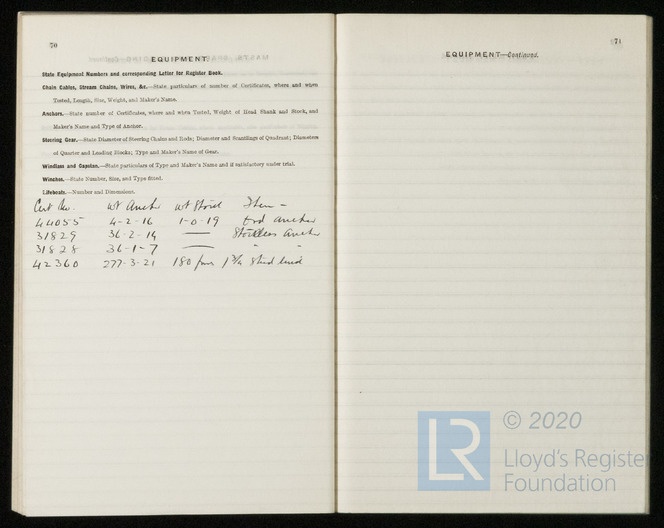 70
EQUIPMENT
State Equipment Numbers and corresponding Letter for Register Book.
Chain Cables, Stream Chains, Wires, &c.—State particulars of number of Certificates, where and when
Tested, Length, Size, Weight, and Maker's Name.
Anchors.—State number of Certificates, where and when Tested, Weight of Head Shank and Stock, and
Maker's Name and Type of Anchor.
Steering Gear.—State Diameter of Steering Chains and Rods; Diameter and Scantlings of Quadrant; Diameters
of Quarter and Leading Blocks; Type and Maker's Name of Gear.
Windlass and Capstan.—State particulars of Type and Maker's Name and if satisfactory under trial.
Winches.—State Number, Size, and Type fitted.
Lifeboats.—Number and Dimensions.
Cert No. Wt Anch Wt Stock Item -
44055 4-2-16 1-0-19 Anchor
31829 36-2-14 — Stockless Anch
31828 36-1-7 — " "
42360 277-3-21 180 fms 1 3/4 Stud
71
EQUIPMENT—Continued.
LR
© 2020
Lloyd's Register
Foundation